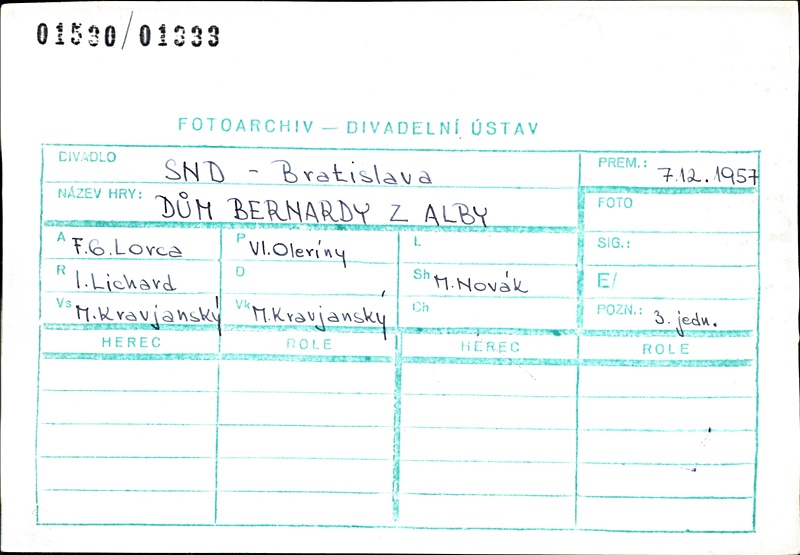 01530/01333
FOTOARCHIV — DIVADELNÍ ÚSTAV
DIVADLO SND - Bratislava PREM.: 7.12.1957
NÁZEV HRY: DŮM BERNARDY Z ALBY FOTO
A F.G.Lorca P Vl.Oleríny L SIG.:
R I.Lichard D Sh M.Novák E/
Vs M.Kravjanský Vk M.Kravjanský Ch POZN.: 3. jedn.
HEREC ROLE HEREC ROLE